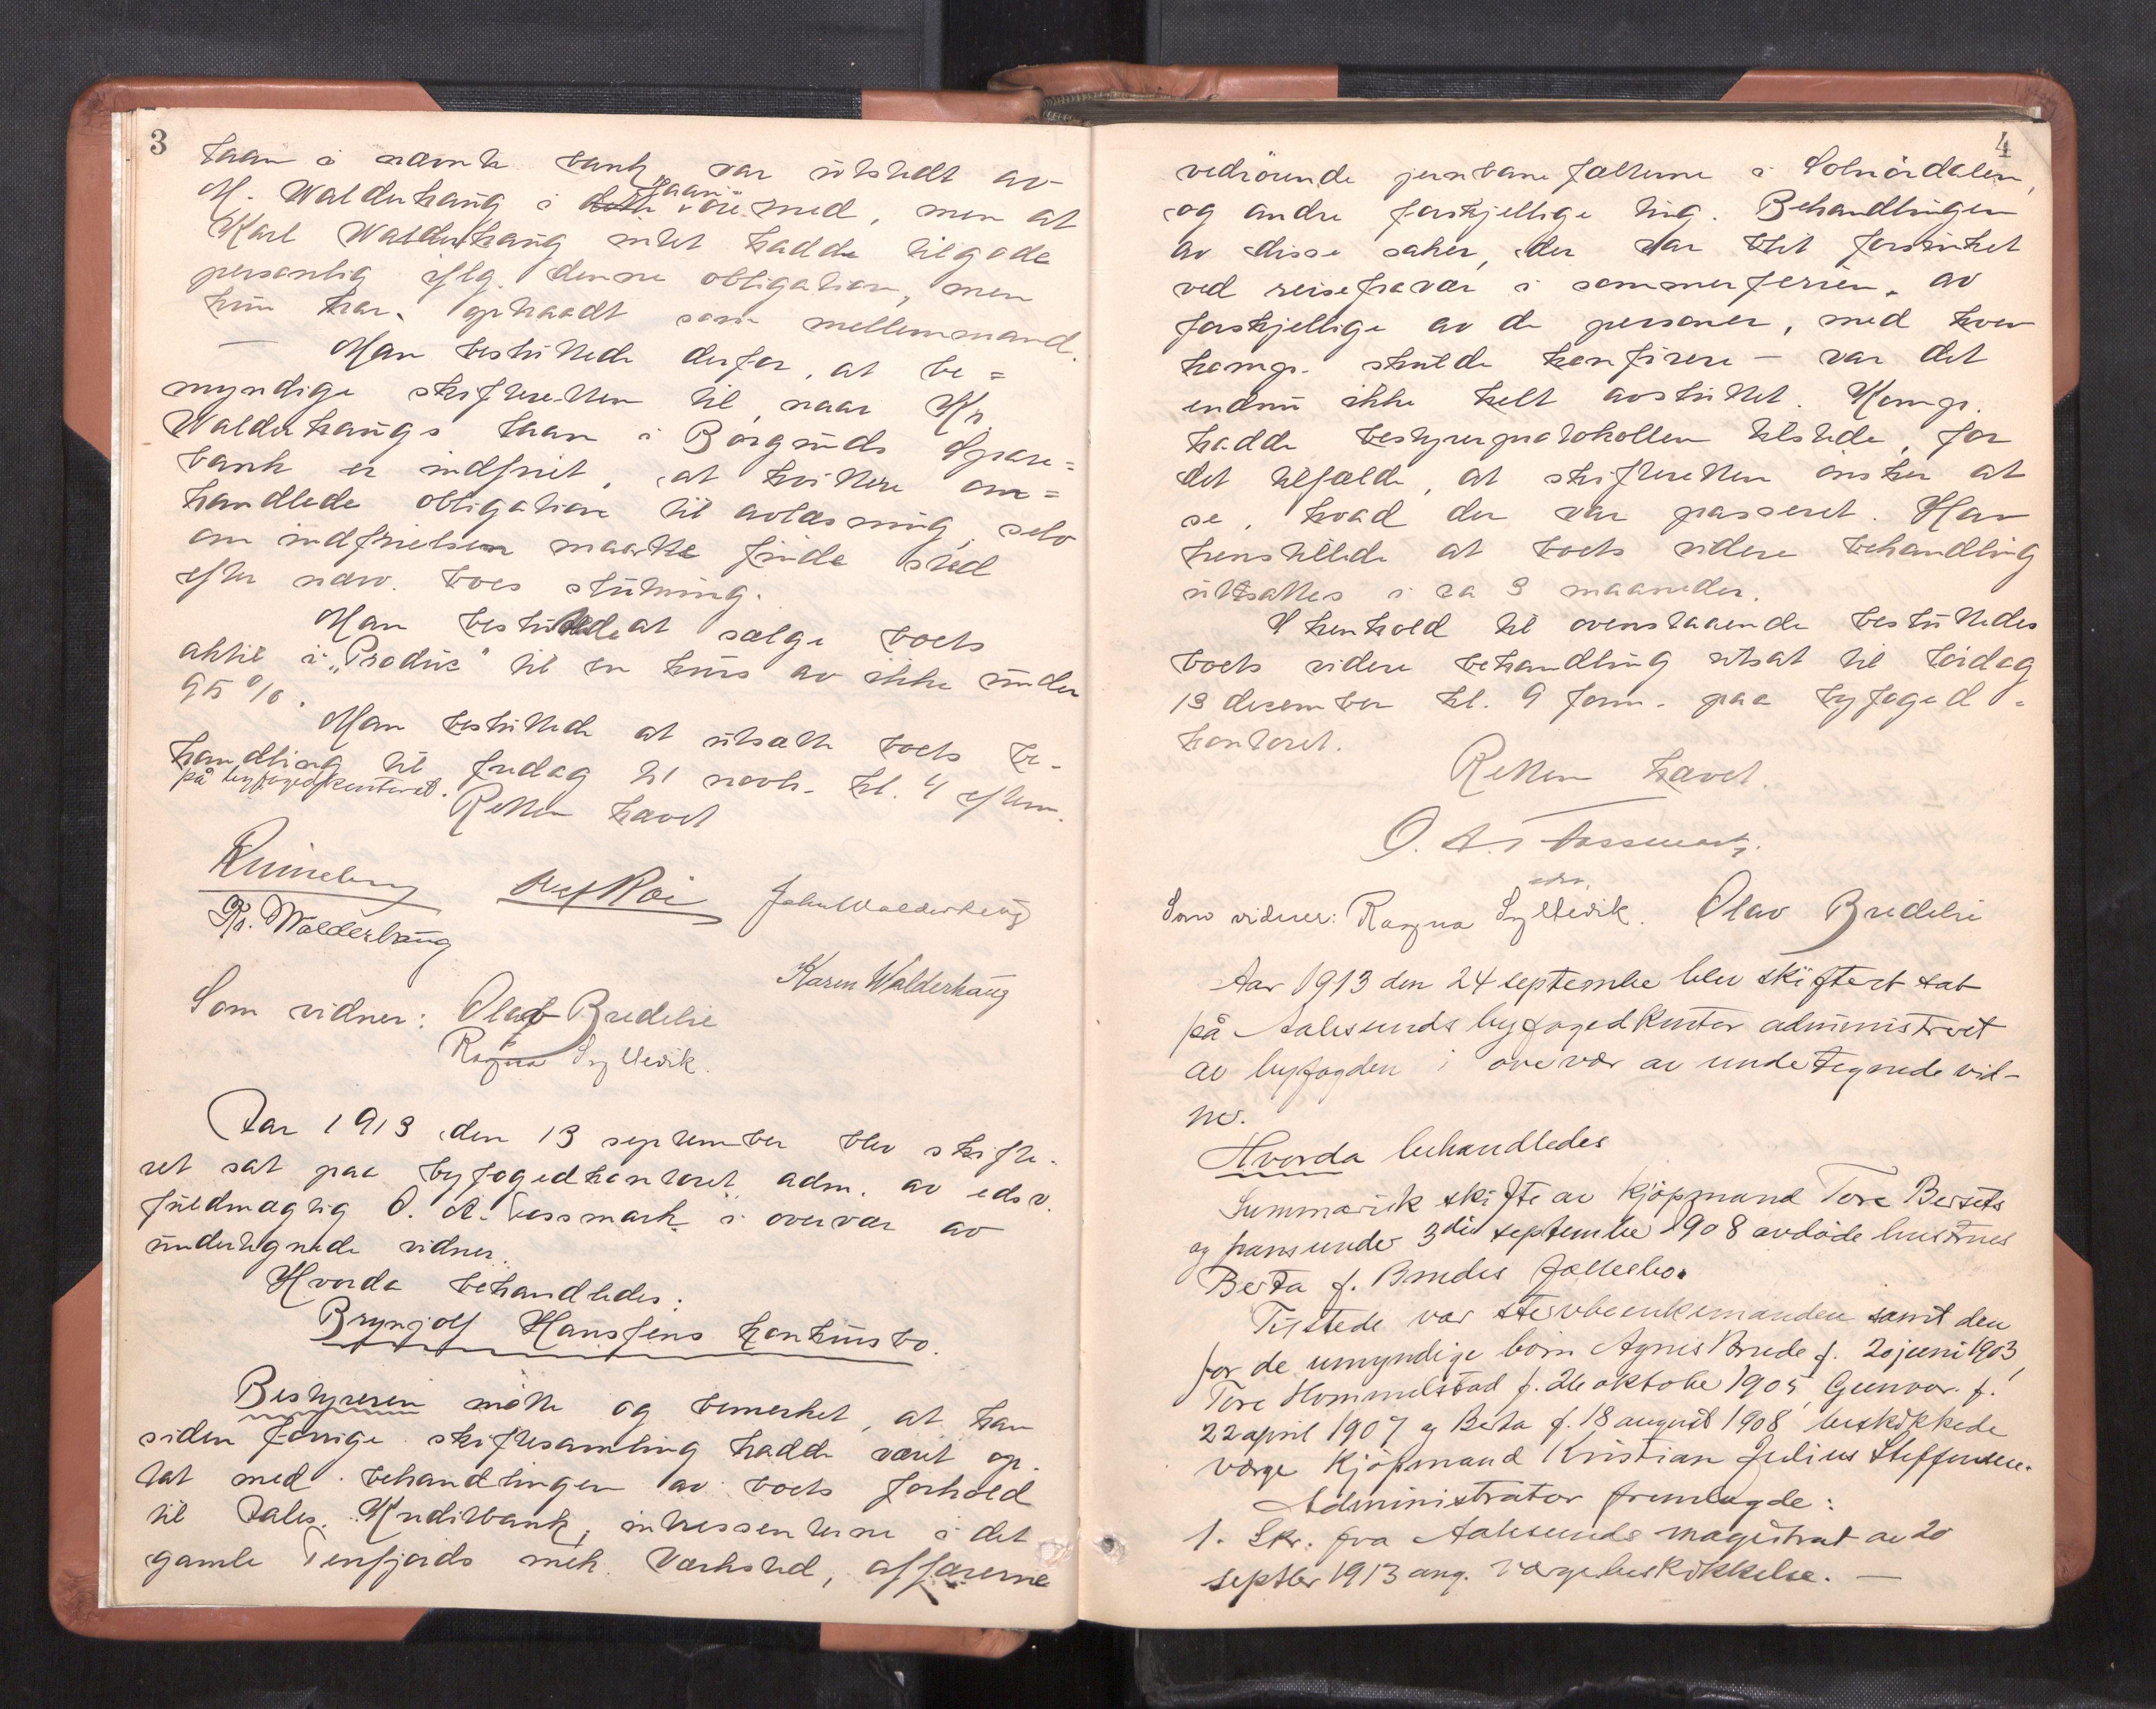 3
laan i nævnte bank var utstedt av
M. Walderhaug i laanöiemed, men at
Karl Walderhaug intet hadde tilgode
personlig iflg. denne obligation, men
kun har optraadt som mellemmand.
— Man besluttede derfor, at be=
myndige skifteretten til, naar Kr.
Walderhaugs laan i Borgunds Spare=
bank er indfriet, at kvittere om=
handlede obligation til avlæsning, selv
om indfrielsen maatte finde sted
efter nærv. boes slutning.
Man besluttede at sælge boets
aktie i "Produc" til en kurs av ikke under
95 %.
Man besluttede at utsætte boets be-
handling til fredag 21 novb. kl. 4 efterm.
på byfogedkontoret.
Retten hævet
Runneberg Alex Roi John Walderhaug
Kr. Walderhaug
Karen Walderhaug
Som vidner: Olav Bredeli
Ragna Syltevik.
Aar 1913 den 13 september blev skifte-
ret sat paa byfogedkontoret adm. av edsv.
fuldmægtig O. A. Tassmark i overvær av
undertegnede vidner.
Hvorda behandledes:
Brynjolf Hansens konkursbo.
Bestyreren mötte og bemerket, at han
siden forrige skiftesamling hadde været op-
tat med behandlingen av boets forhold
til Aales. Kreditbank, interessenterne i det
gamle Tenfjords mek. Værksted, affærerne
4
vedrörende jernbanefælterne i Solnördalen,
og andre forskjellige ting. Behandlingen
av disse saker, der var blit forsinket
ved reisefravær i sommerferien, av
forskjellige av de personer, med hvem
komp. skulde konferere — var det
endnu ikke helt avsluttet. Komp.
hadde bestyrerprotokollen tilstede, for
det tilfælde, at skifteretten önsker at
se, hvad der var passeret. Han
henstillede at boets videre behandling
utsattes i ca 3 maaneder.
I henhold til ovenstaaende besluttedes
boets videre behandling utsat til lördag
13 desember kl. 9 form. paa byfoged=
kontoret.
Retten hævet.
O. A. Tassmark,
edsv.
Som vidner: Ragna Syltevik. Olav Bredeli
Aar 1913 den 24 september blev skifteret sat
på Aalesunds byfogedkontor administrert
av byfogden i overvær av undertegnede vid-
ner.
Hvorda behandledes
Summarisk skifte av kjöpmand Tore Bersets
og hans under 3die september 1908 avdöde hustrues
Berta f. Brudes fællesbo.
Tilstede var stervboenkemanden samt den
for de umyndige börn Agnes Brude f. 20 juni 1903,
Tore Hommelstad f. 26 oktober 1905, Gunvor f.
22 april 1907 og Berta f. 18 august 1908 beskikkede
værge kjöpmand Kristian Julius Steffensen.
Administrator fremlagde:
1. Skr. fra Aalesunds magistrat av 20
septbr 1913 ang. værgebeskikkelse. —